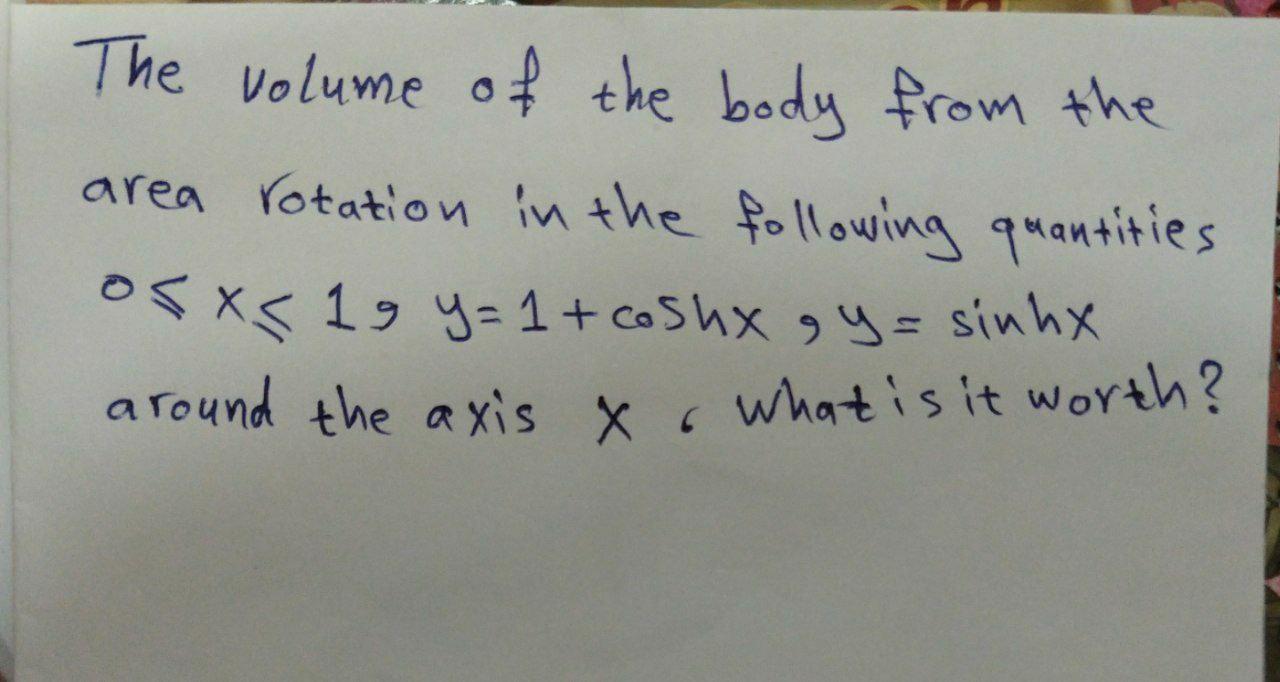 The volume of the body from the
area rotation in the following quantities
0 ⩽ x ⩽ 1 , y = 1 + coshx , y = sinhx
around the axis x ، what is it worth?